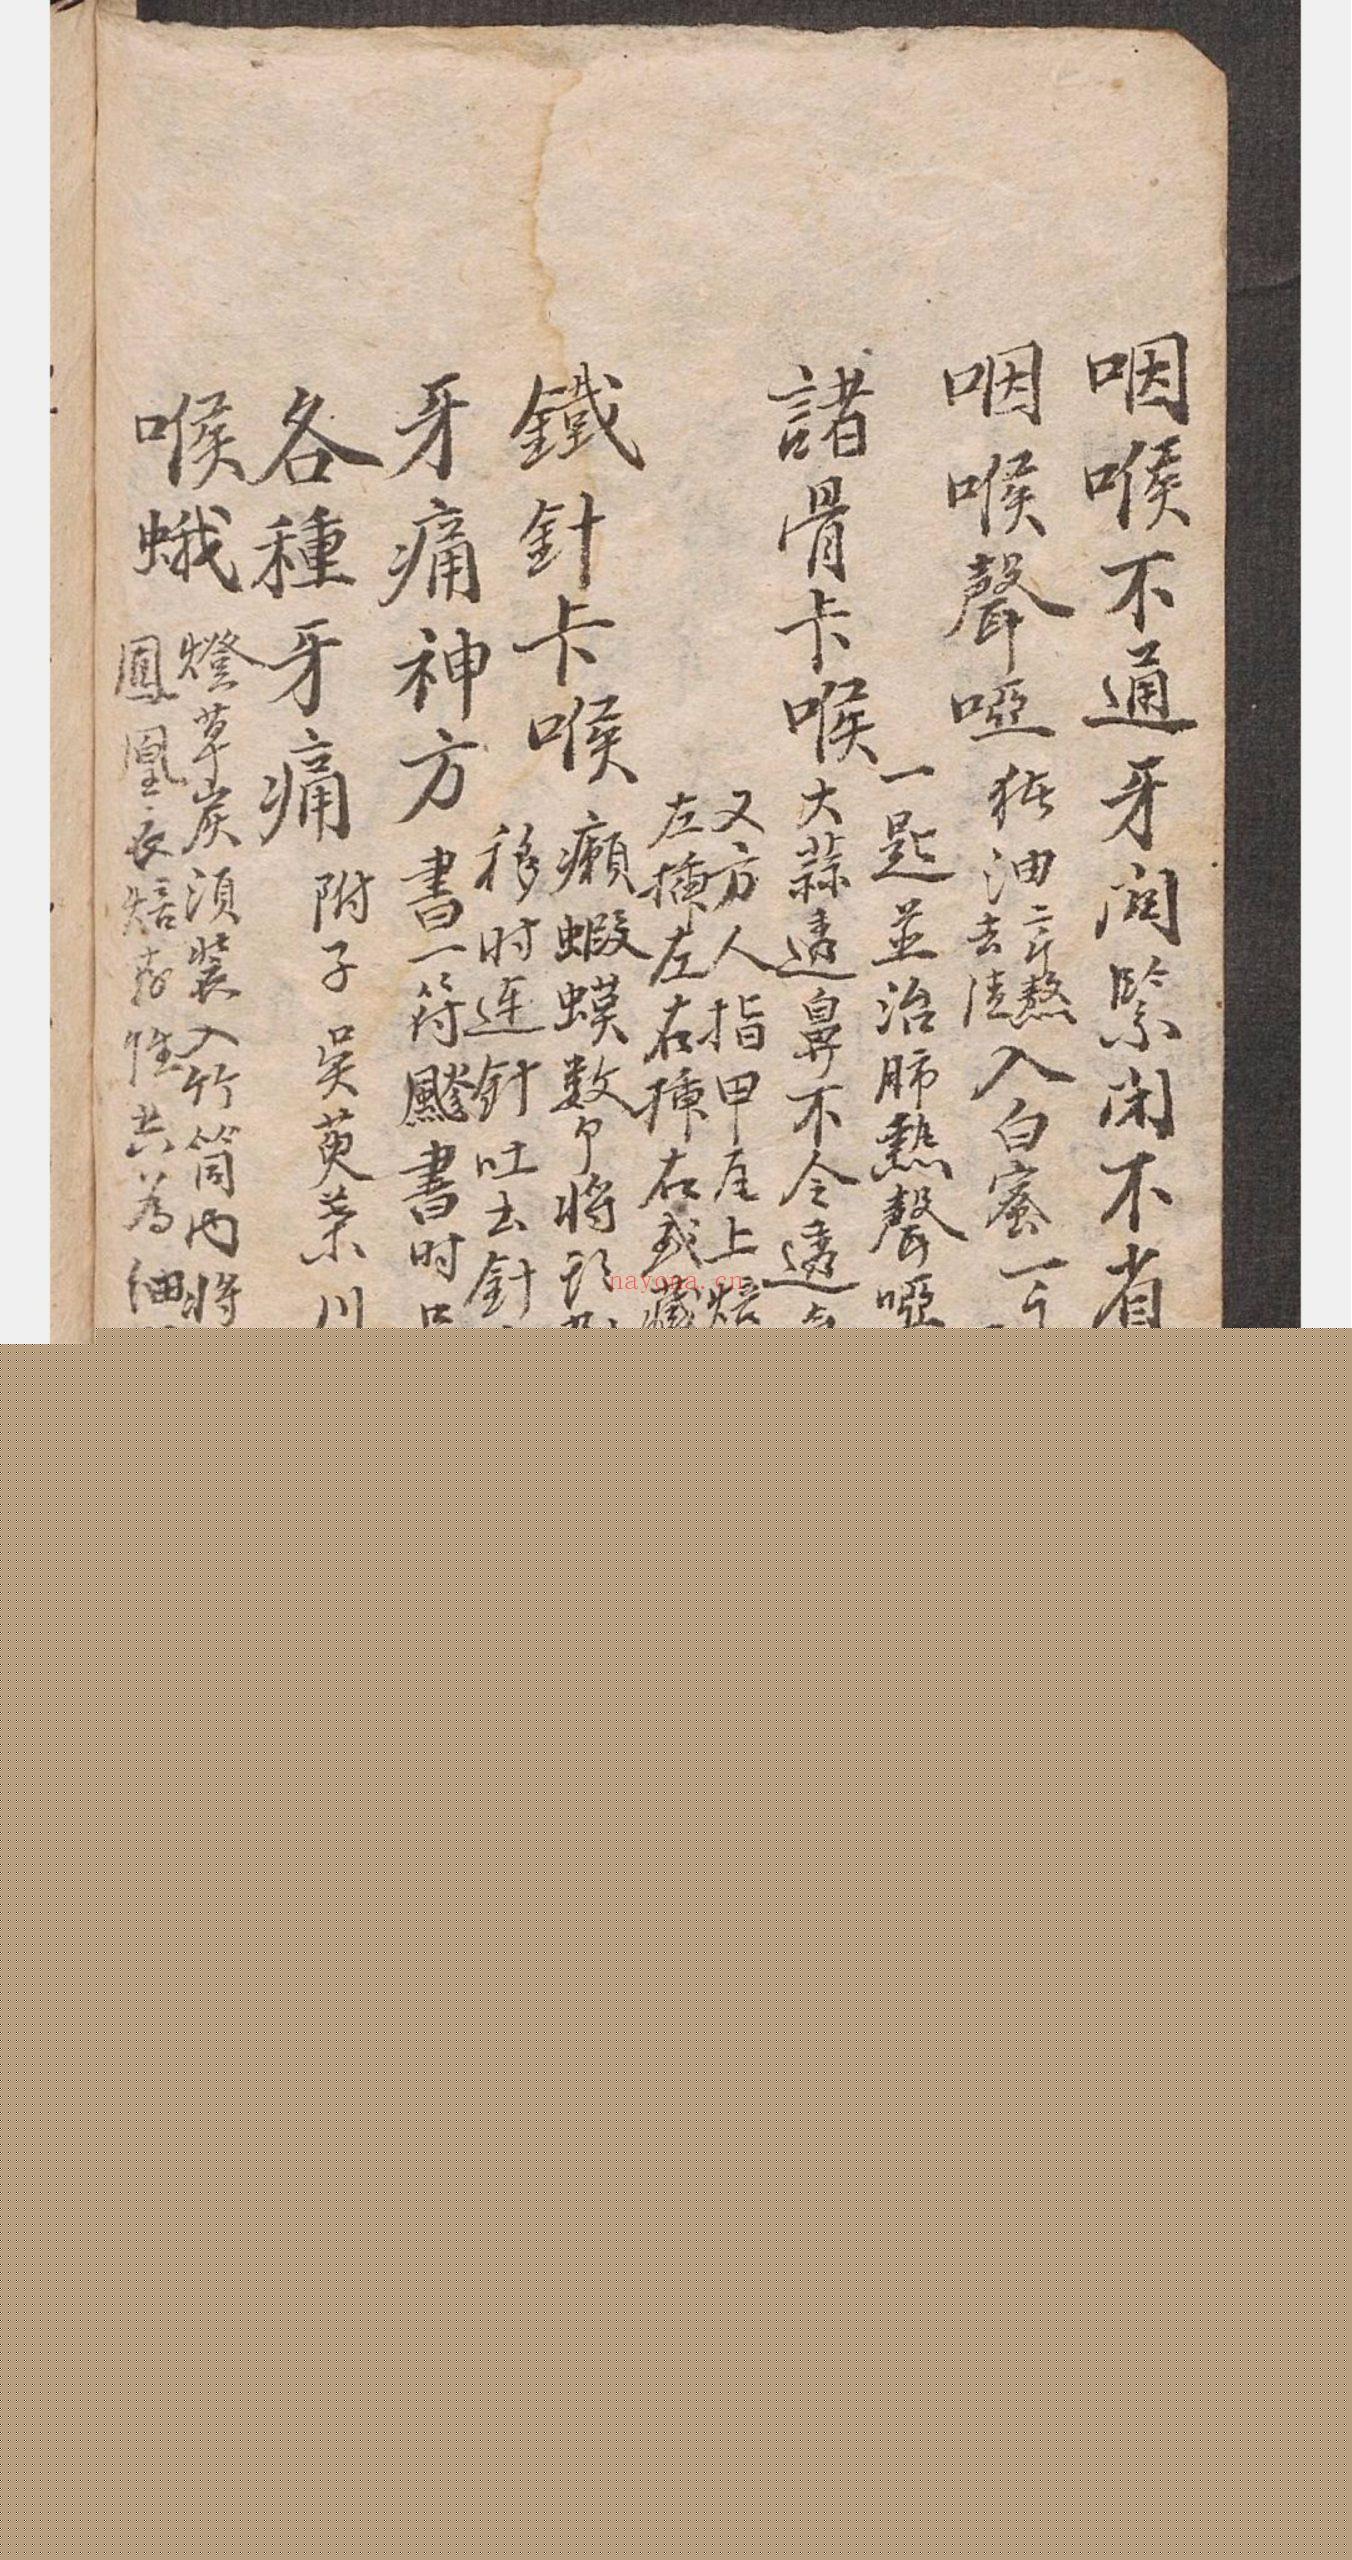 咽喉不通牙関緊閉不省
咽喉聲啞 猪油二斤熬去渣入白蜜一斤
一匙並治肺熱聲啞
諸骨卡喉 大蒜遶鼻不令透
又方人指甲瓦上焙
左揷左右揷右或
鐵針卡喉 癩蝦蟆数个將頭
移时连針吐出針
牙痛神方 書一符 書时口
各種牙痛 附子 吳萸 川
喉蛾 燈草炭須装入竹筒内將
鳳凰衣焙存性共為細
nayona.cn